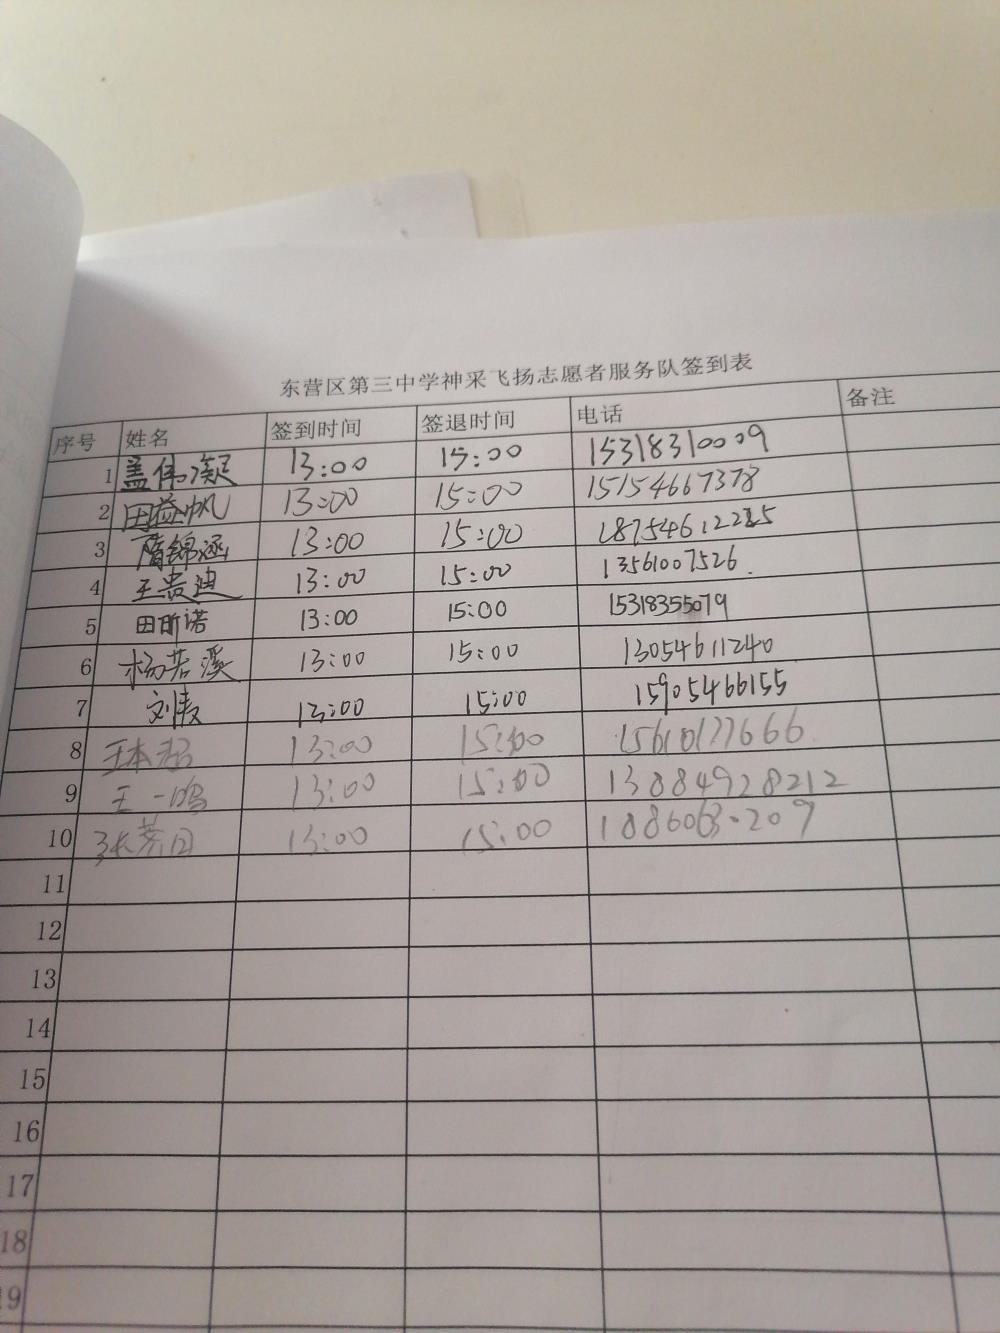 东营区第三中学神采飞扬志愿者服务队签到表
序号 姓名 签到时间 签退时间 电话 备注
1 盖伟凝 13:00 15:00 15318310009
2 田益帆 13:00 15:00 15154667378
3 隋锦涵 13:00 15:00 18754612285
4 王贵迪 13:00 15:00 13561007526.
5 田昕诺 13:00 15:00 15318355079
6 杨若溪 13:00 15:00 13054611240
7 刘 13:00 15:00 15905466155
8 王本 13:00 15:00 15610177666
9 王一鸣 13:00 15:00 13884928212
10 张 13:00 15:00
11
12
13
14
15
16
17
18
19